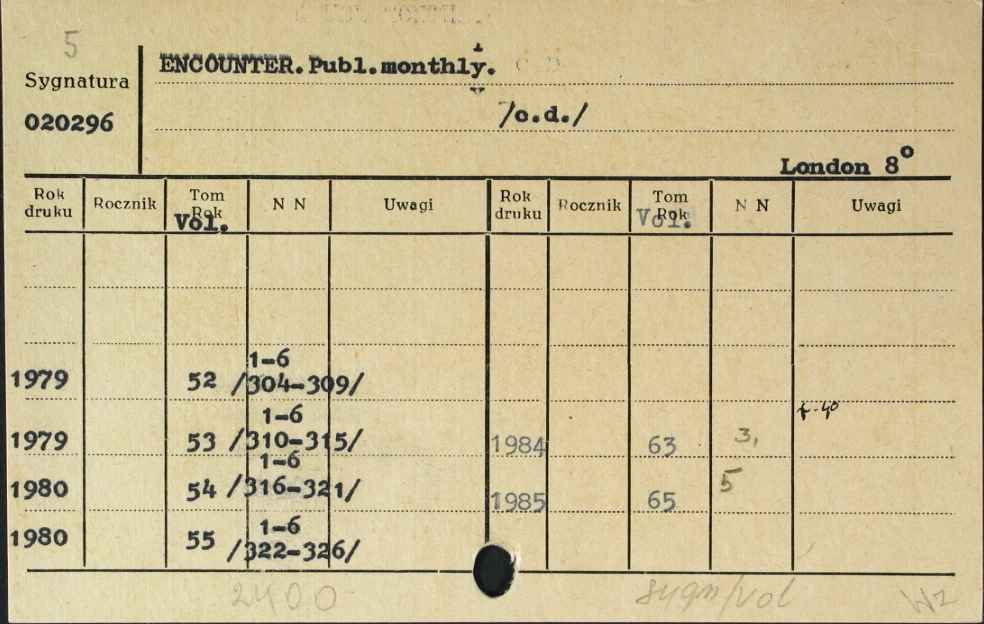 5
Sygnatura
020296
ENCOUNTER. Publ. monthly.
/c.d./
London 8°
Rok druku Rocznik Tom Rok Vol. N N Uwagi Rok druku Rocznik Tom Rok Vol. N N Uwagi
1-6
1979 52 /304-309/
1-6
1979 53 /310-315/ 1984 63 3,
1-6
1980 54 /316-321/ 1985 65 5
1-6
1980 55 /322-326/
2400 sygn/vol Wz